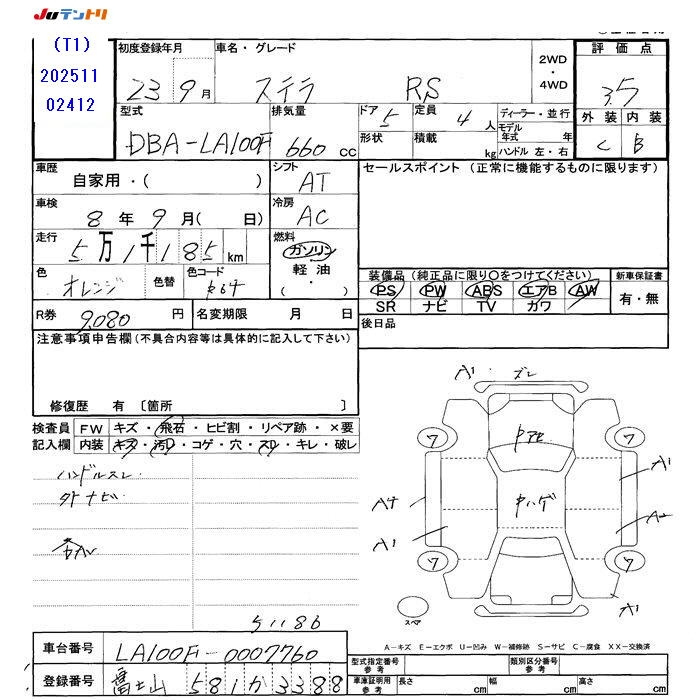 JUテントリ
(T1)
202511
02412
初度登録年月 車名・グレード 2WD・4WD 評価点
23 9月 ステラ RS 3.5
型式 排気量 ドア 定員 ディーラー・並行 外装 内装
DBA-LA100F 660cc 5 4人 モデル年式 年 C B
形状 積載 kg ハンドル 左・右
車歴 シフト セールスポイント (正常に機能するものに限ります)
自家用・( ) AT
車検 冷房
8年9月( 日) AC
走行 燃料
5万1千185km ガソリン
軽油
・( )
色 色替 色コード 装備品(純正品に限り○をつけてください) 新車保証書
オレンジ PS PW ABS エアB AW 有・無
SR ナビ TV カワ
R券 9,080円 名変期限 月 日 後日品
注意事項申告欄(不具合内容等は具体的に記入して下さい)
修復歴 有 〔箇所 〕
検査員 FW キズ・飛石・ヒビ割・リペア跡・×要
記入欄 内装 キズ・汚レ・コゲ・穴・スレ・キレ・破レ
ハンドルスレ
外ナビ
A1 ズレ
ワ ワ
A1
A4 A2
A1
ワ ワ
A1
スペア
51186
A-キズ E-エクボ U-凹み W-補修跡 S-サビ C-腐食 XX-交換済
車台番号 LA100F-0007760
型式指定番号 参考 類別区分番号 参考
登録番号 富士山 581か3388
車庫証明用 参考 長さ cm 幅 cm 高さ cm